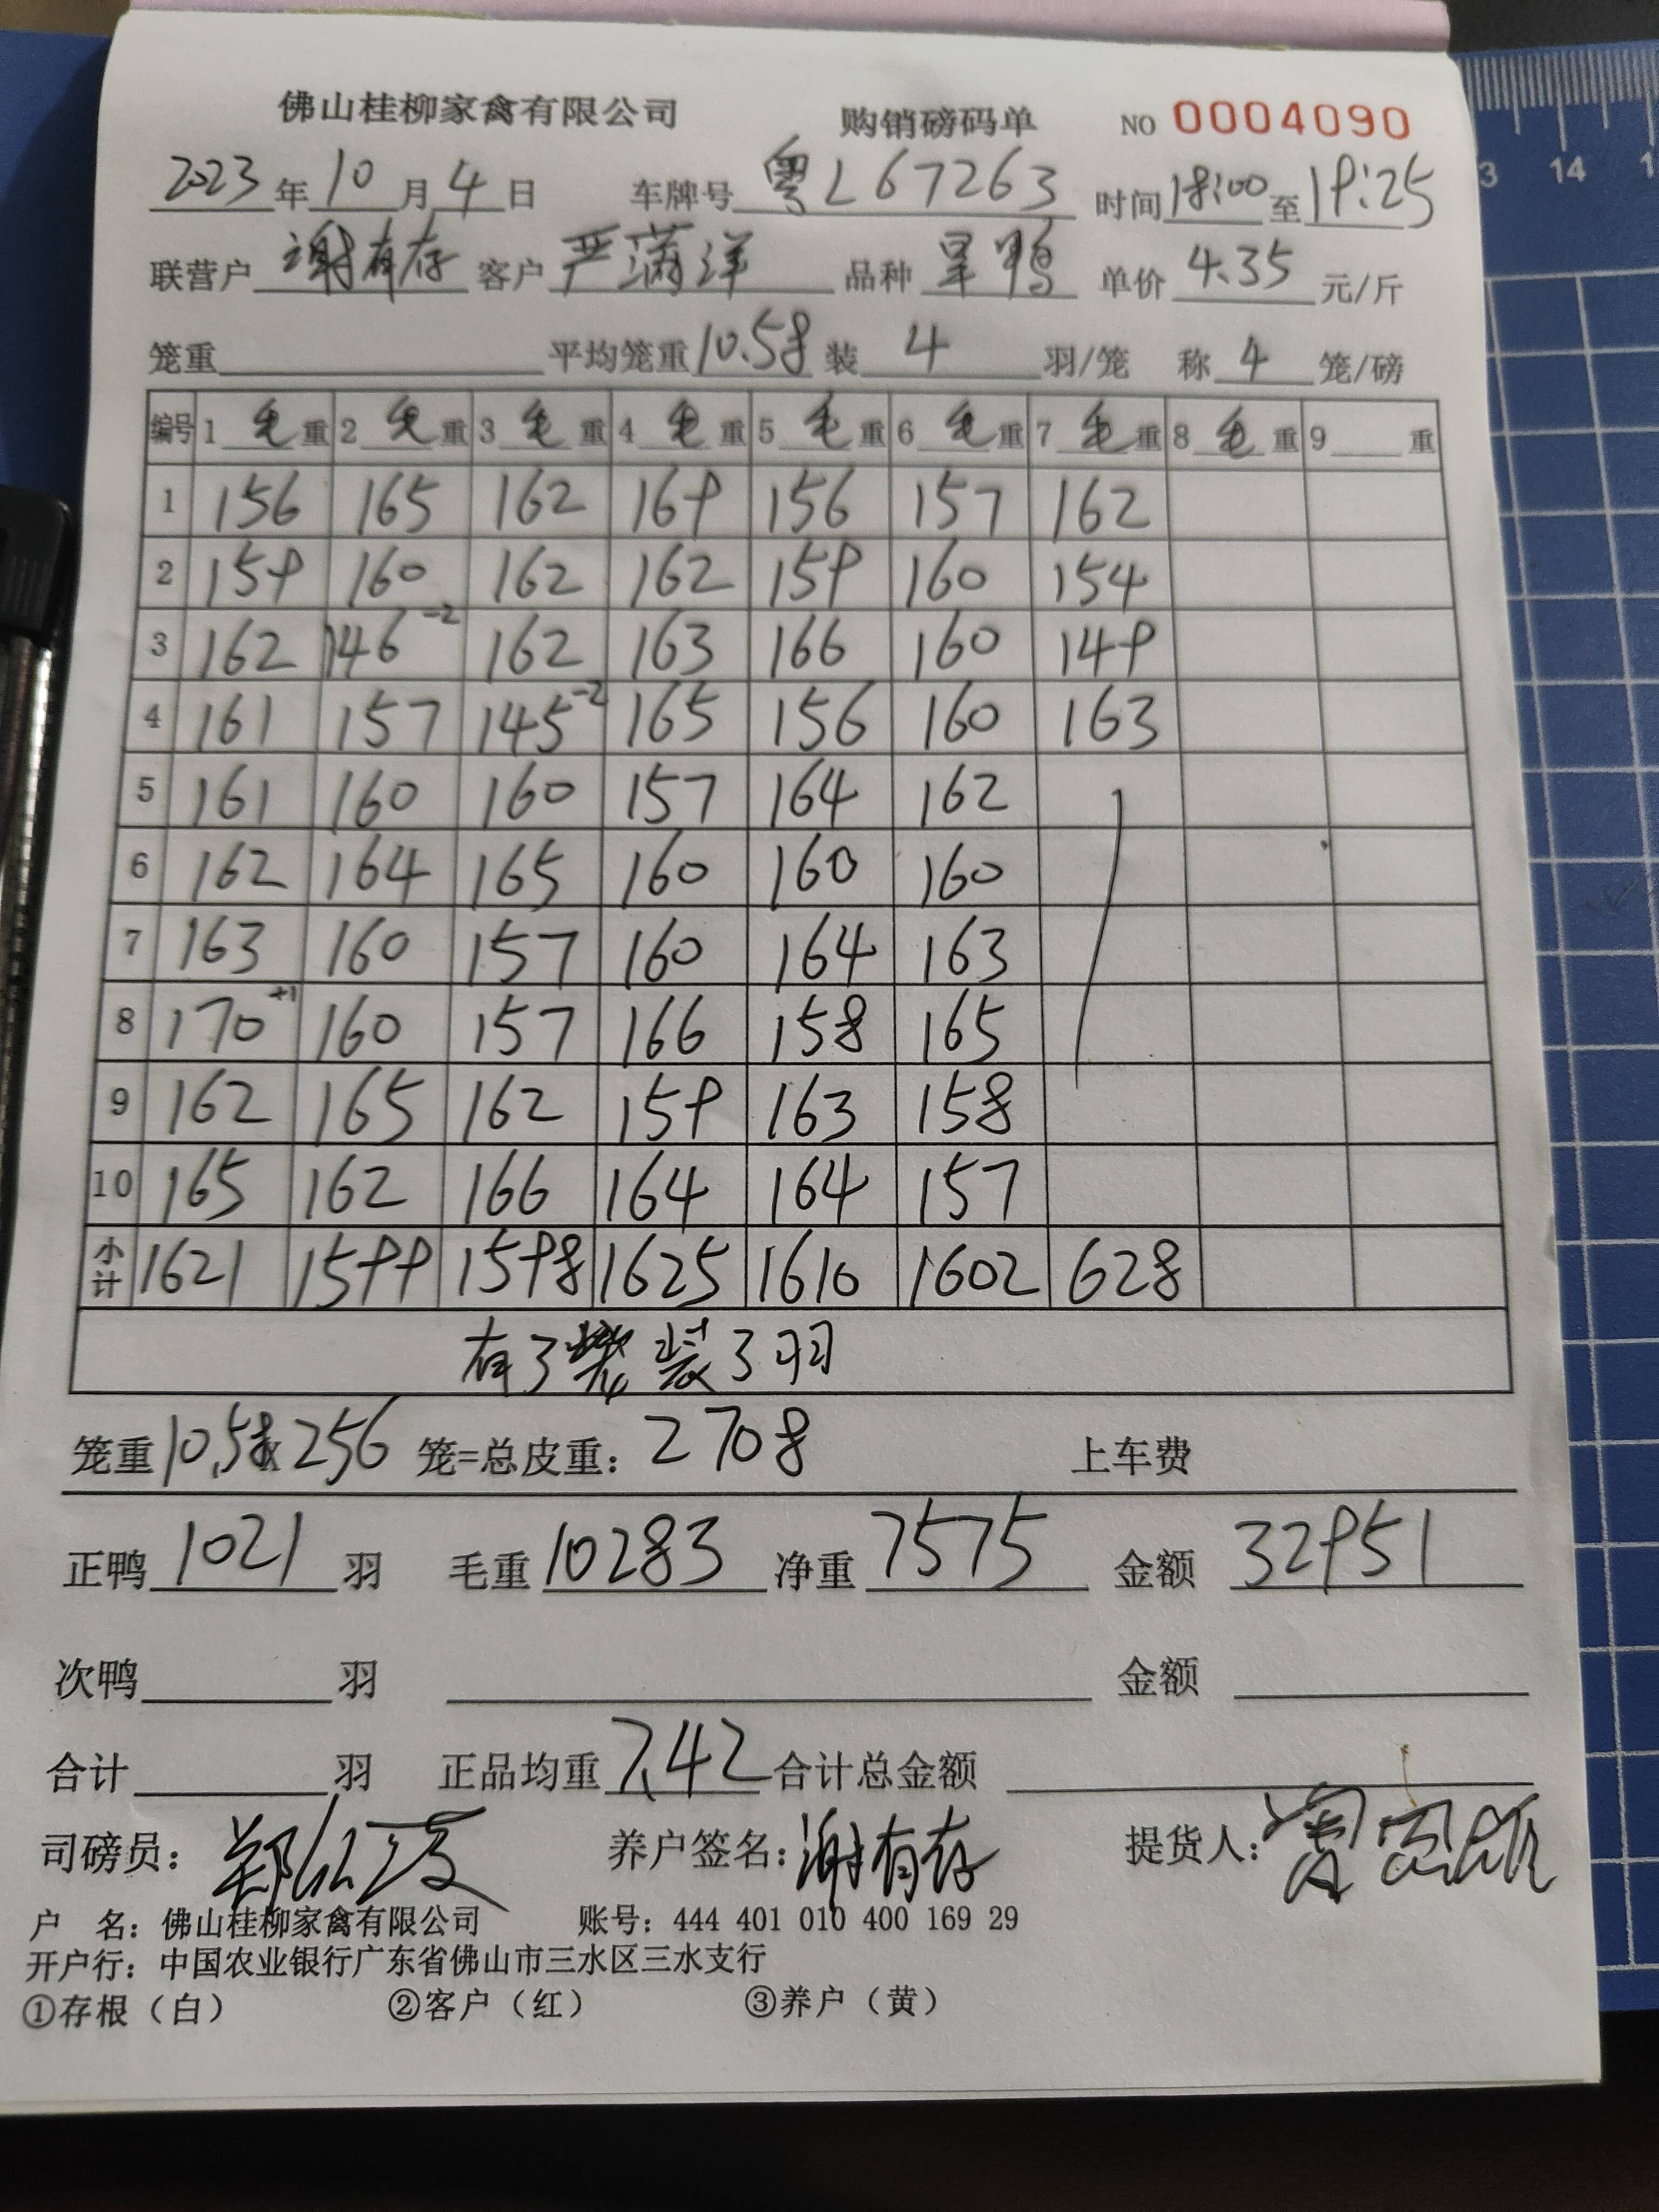 佛山桂柳家禽有限公司 购销磅码单 NO 0004090
2023年10月4日 车牌号粤L67263 时间18:00至19:25
联营户谢有存 客户严满洋 品种 鸭 单价4.35元/斤
笼重 平均笼重10.58装4羽/笼 称4笼/磅
编号 1毛重 2毛重 3毛重 4毛重 5毛重 6毛重 7毛重 8毛重 9重
1 156 165 162 169 156 157 162
2 159 160 162 162 159 160 154
3 162 146-2 162 163 166 160 149
4 161 157 145-2 165 156 160 163
5 161 160 160 157 164 162
6 162 164 165 160 160 160
7 163 160 157 160 164 163
8 170+1 160 157 166 158 165
9 162 165 162 159 163 158
10 165 162 166 164 164 157
小计 1621 1599 1598 1625 1610 1602 628
有3 装3羽
笼重10.58x256笼=总皮重:2708 上车费
正鸭1021羽 毛重10283净重7575 金额32951
次鸭 羽 金额
合计 羽 正品均重7.42合计总金额
司磅员: 养户签名:谢有存 提货人:
户 名:佛山桂柳家禽有限公司 账号:444 401 010 400 169 29
开户行:中国农业银行广东省佛山市三水区三水支行
①存根(白) ②客户(红) ③养户(黄)
13 14